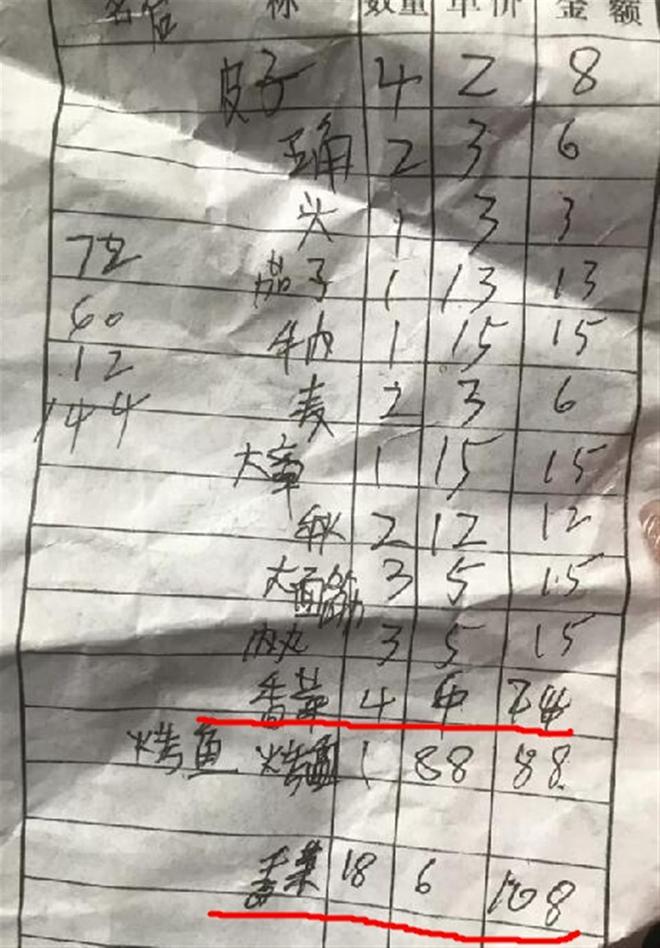 名 称 数量 单价 金 额
皮子 4 2 8
玉角 2 3 6
头 1 3 3
72
茄子 1 13 13
60
牛肉 1 15 15
12
麦 2 3 6
144
大章 1 15 15
2 12 12
大面筋 3 5 15
肉丸 3 5 15
香菜 4 6 24
烤鱼 烤鱼 1 88 88
香菜 18 6 108